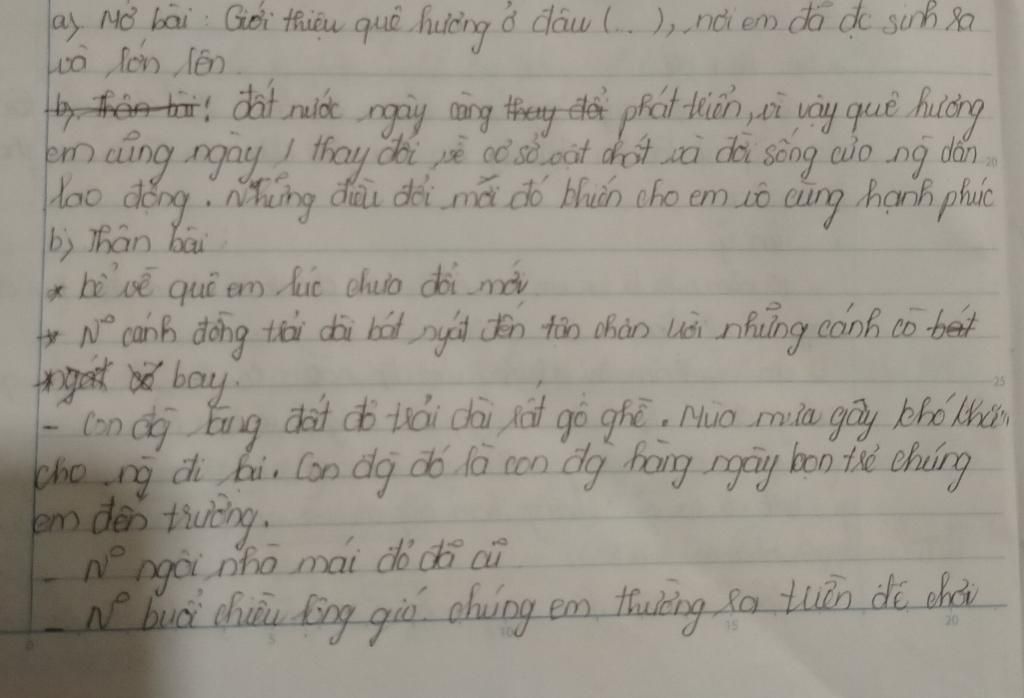 a) Mở bài: Giới thiệu quê hương ở đâu (...), nơi em đã đc sinh ra
và lớn lên.
b) Thân bài: đất nước ngày càng thay đổi phát triển, vì vậy quê hương
em cũng ngày 1 thay đổi về cơ sở vật chất và đời sống của ng dân
lao động. Những điều đổi mới đó khiến cho em vô cùng hạnh phúc
b) Thân bài
* kể về quê em lúc chưa đổi mới
* No cánh đồng trải dài bát ngát đến tận chân trời những cánh cò bát
ngát bay.
- Con đg làng đất đỏ trải dài rất gồ ghề. Mùa mưa gây khó khăn
cho ng đi lại. Con đg đó là con đg hàng ngày bọn trẻ chúng
em đến trường.
- No ngôi nhà mái đỏ đã cũ
- No buổi chiều lộng gió. chúng em thường ra triền đê chơi
20
25
0 5 10 15 20